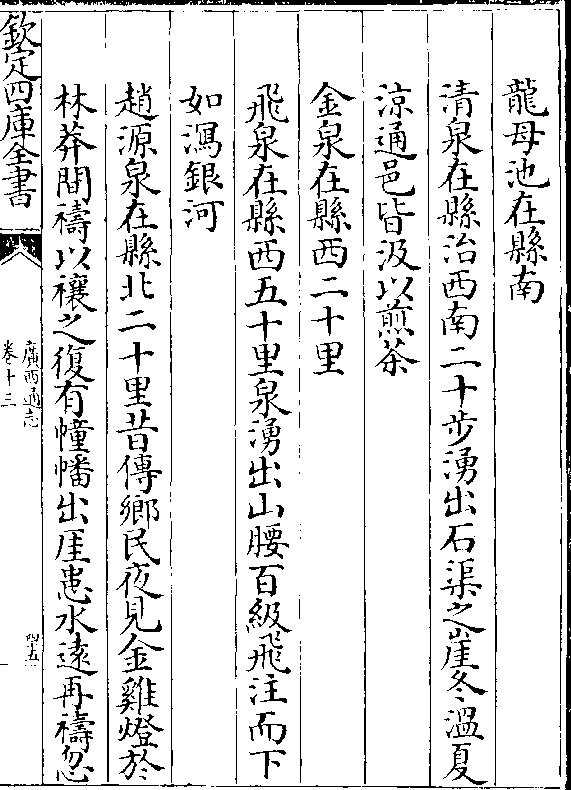 龍母池在縣南
清泉在縣治西南二十步湧出石渠之崖冬溫夏
涼通邑皆汲以煎茶
金泉在縣西二十里
飛泉在縣西五十里泉湧出山腰百級飛注而下
如瀉銀河
趙源泉在縣北二十里昔傳鄉民夜見金雞燈於
林莽間禱以禳之復有幢幡出厓患水遠再禱忽
欽定四庫全書
廣西通志
卷十三
四五